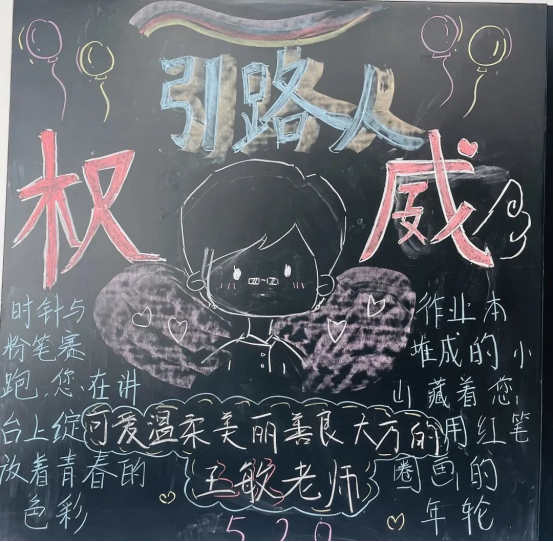 引路人
权威
时针与
粉笔赛
跑,您在讲
台上绽
放着青春的
色彩
可爱温柔美丽善良大方的
王敏老师
作业本
堆成的小
山藏着您
用红笔
圈画的
年轮
520